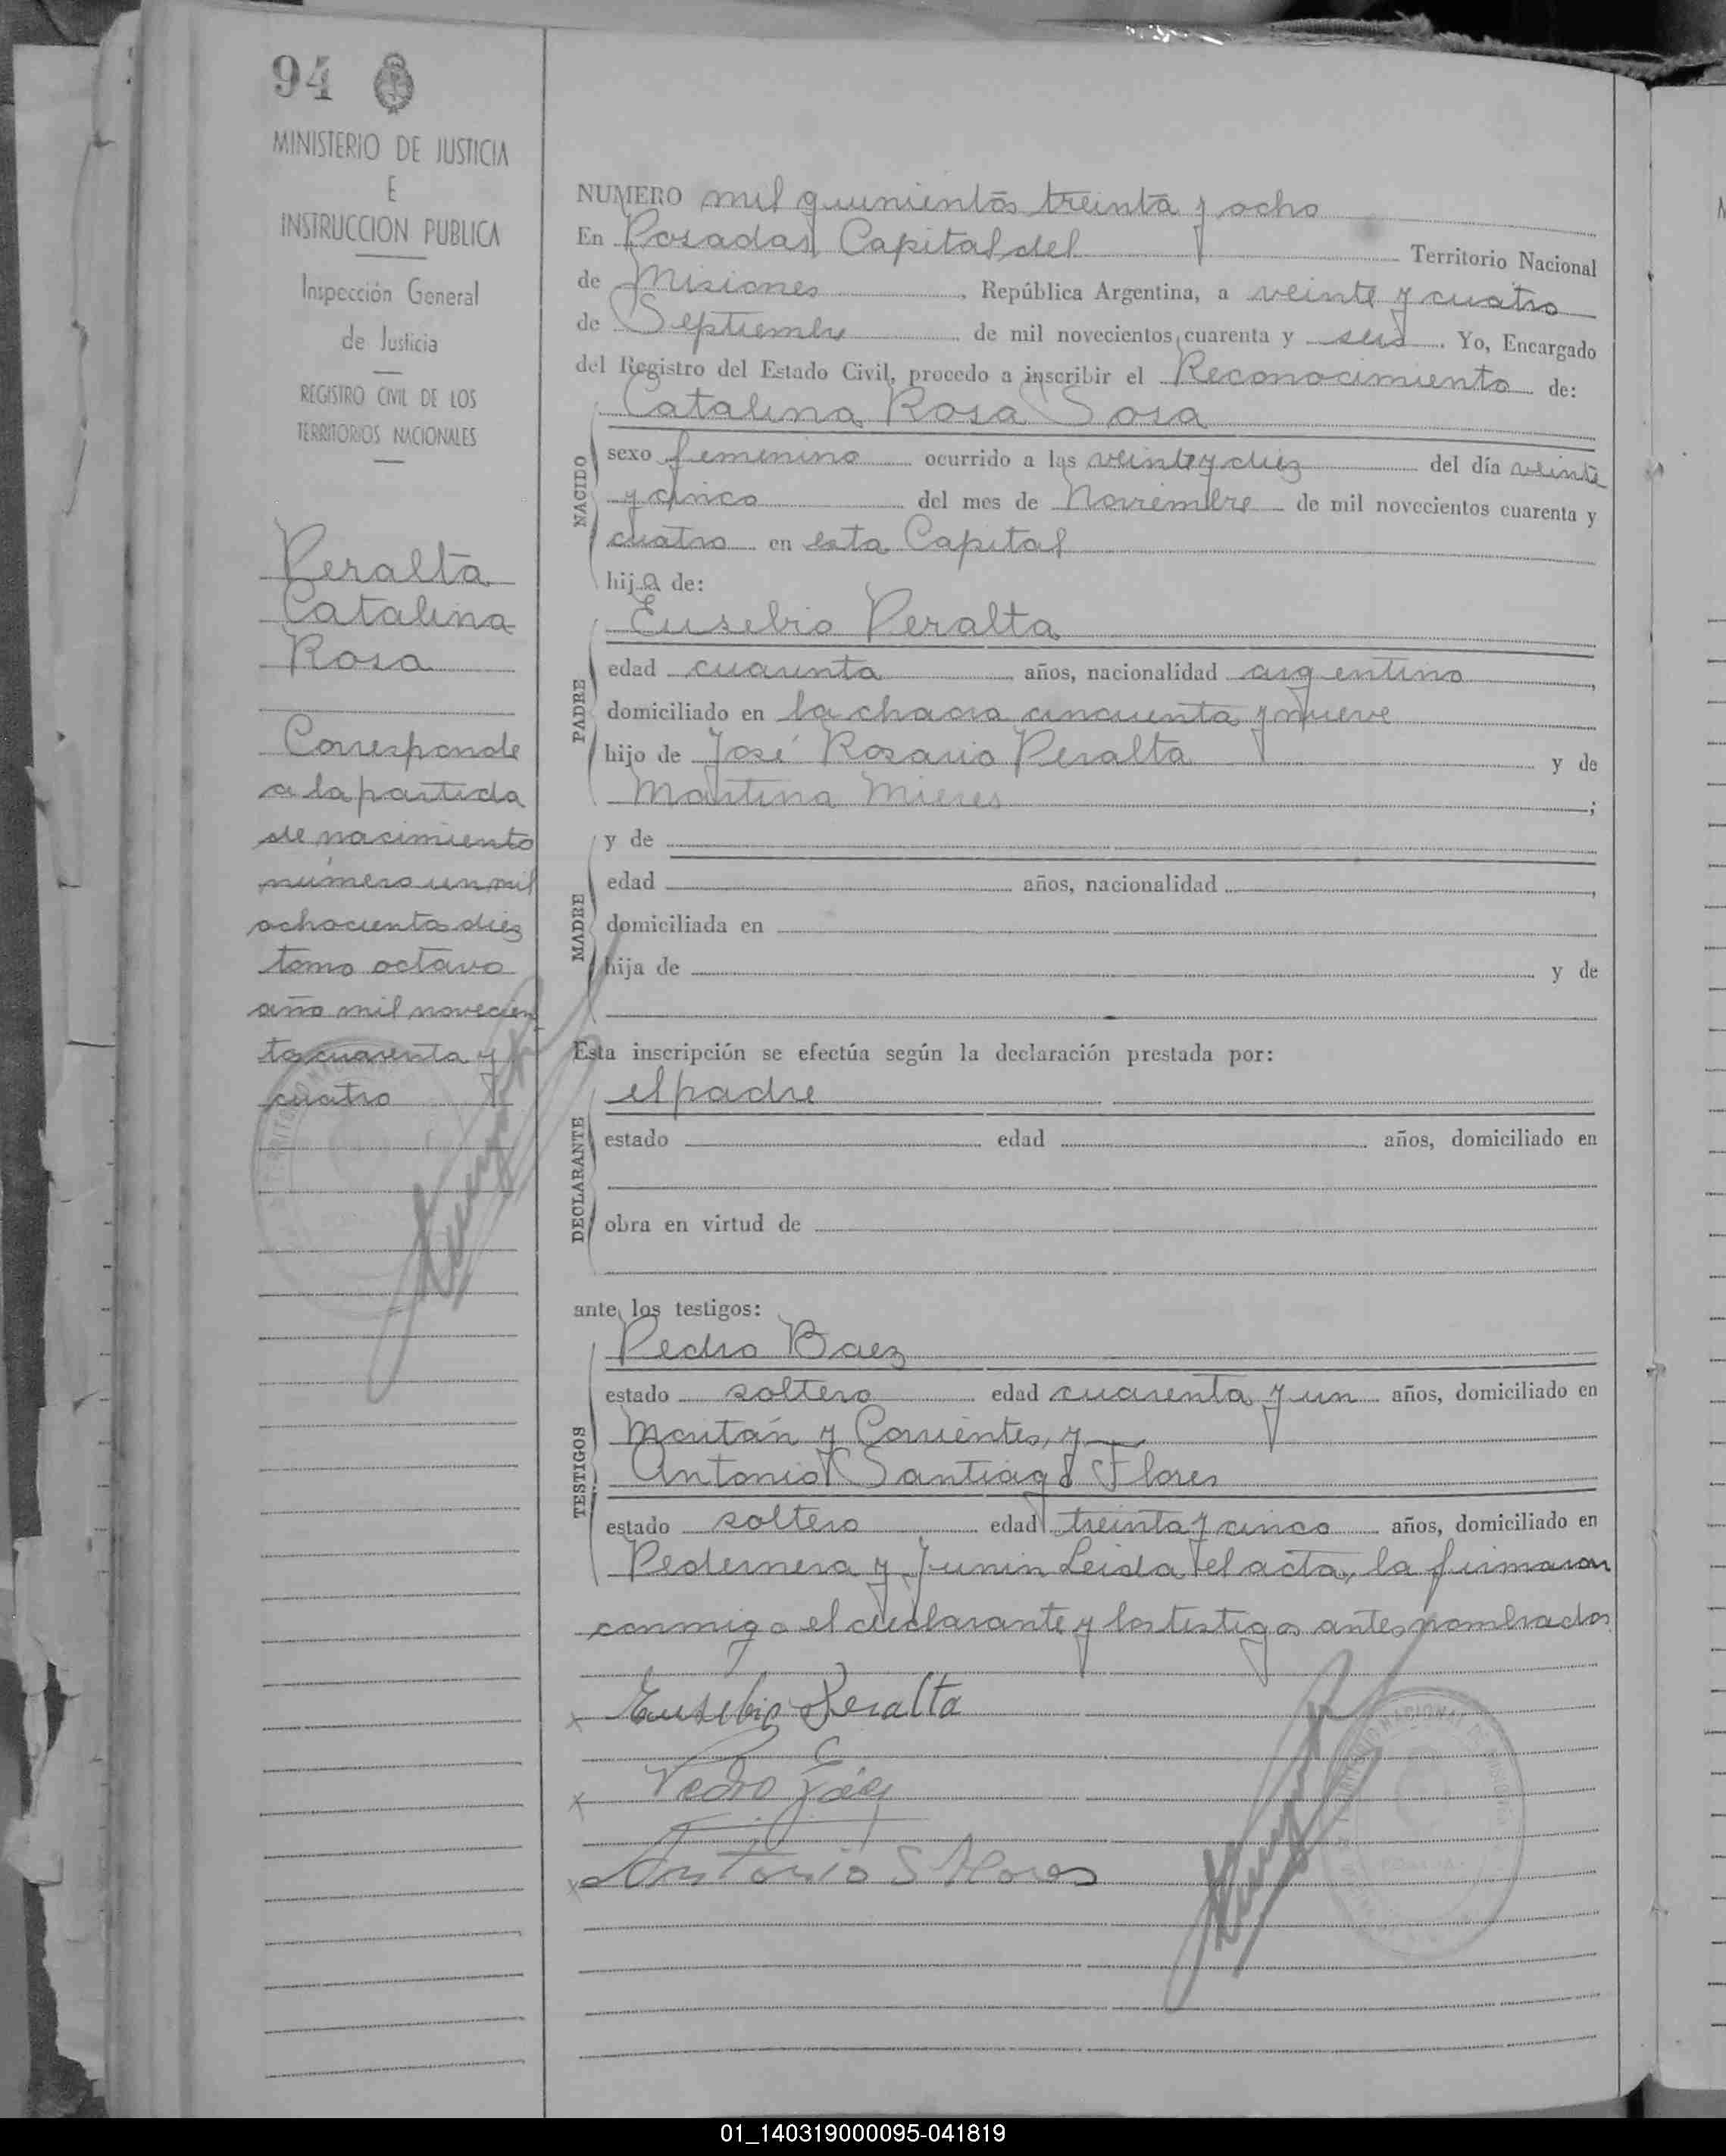 94
MINISTERIO DE JUSTICIA
E
INSTRUCCION PUBLICA
Inspección General
de Justicia
REGISTRO CIVIL DE LOS
TERRITORIOS NACIONALES
Peralta
Catalina
Rosa
Corresponde
a la partida
de nacimiento
número un mil
ochocientos diez
tomo octavo
año mil novecien
tos cuarenta y
cuatro
NUMERO mil quinientos treinta y ocho
En Posadas Capital del Territorio Nacional
de Misiones, República Argentina, a veinte y cuatro
de Septiembre de mil novecientos cuarenta y seis. Yo, Encargado
del Registro del Estado Civil, procedo a inscribir el Reconocimiento de:
Catalina Rosa Sosa
NACIDO
sexo femenino ocurrido a las veinte y diez del día veinte
y cinco del mes de Noviembre de mil novecientos cuarenta y
cuatro en esta Capital
hija de:
PADRE
Eusebio Peralta
edad cuarenta años, nacionalidad argentino,
domiciliado en la chacra cincuenta y nueve
hijo de José Rosario Peralta y de
Martina Mieres;
MADRE
y de
edad años, nacionalidad ,
domiciliada en
hija de y de
Esta inscripción se efectúa según la declaración prestada por:
DECLARANTE
el padre
estado edad años, domiciliado en
obra en virtud de
ante los testigos:
TESTIGOS
Pedro Baez
estado soltero edad cuarenta y un años, domiciliado en
y Corrientes, y
Antonio Santiago Flores
estado soltero edad treinta y cinco años, domiciliado en
Pedernera y Junin Leida el acta, la firmaron
conmigo el declarante y los testigos antes nombrados
x Eusebio Peralta
x Pedro Báez
x Antonio S Flores
01_140319000095-041819